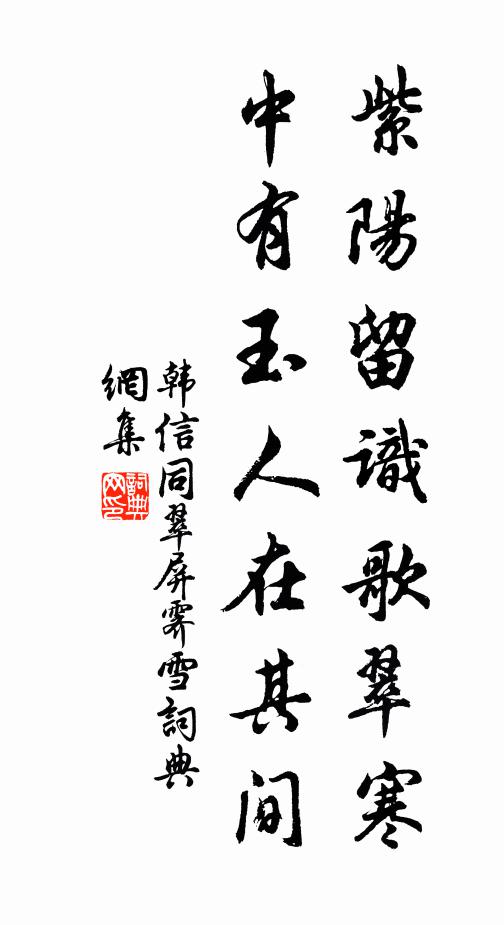 紫陽留識歌翠寒
中有玉人在其間
韩信同翠屏霁雪詞典
網集
詞典网印